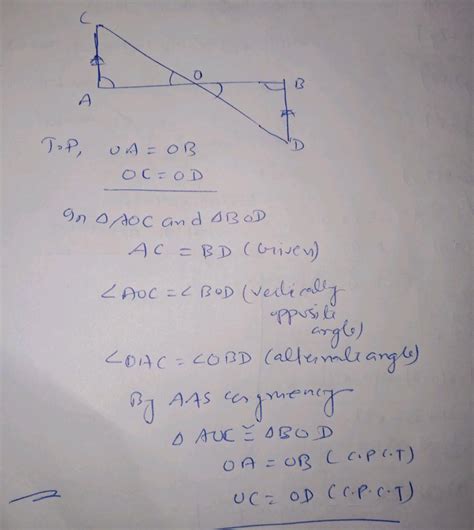 C
O
B
A
D
T.P, OA = OB
OC = OD
In △AOC and △BOD
AC = BD (Given)
∠AOC = ∠BOD (vertically
opposite
angle)
∠OAC = ∠OBD (alternate angle)
By AAS congruency
△AOC ≅ △BOD
OA = OB (C.P.C.T)
OC = OD (C.P.C.T)